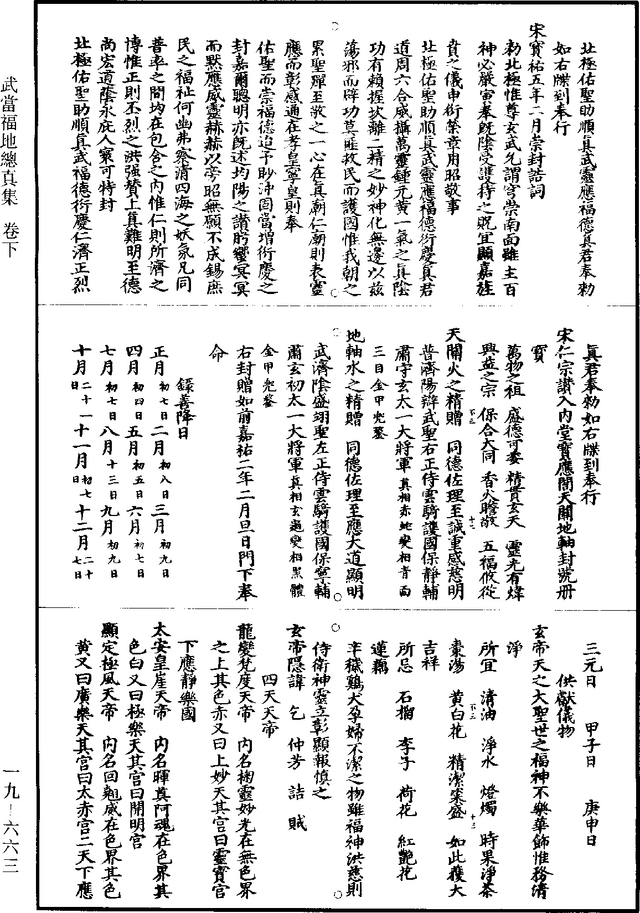 武當福地總真集　卷下
一九—六六三
北極佑聖助順真武靈應福德真君奉勑
如右牒到奉行
宋寶祐五年二月崇封誥詞
勑北極惟尊玄武允謂宮崇南面雖主百
神必嚴寅奉既陰受護持之貺宜顯嘉旌
賁之儀申衍榮章用昭敬事
北極佑聖助順真武靈應福德衍慶真君
道周六合威攝萬靈鍾元黃一氣之真陰
功有賴握坎離二精之妙神化無邊以茲
蕩邪而辟功莫匪救民而護國惟我朝之
累聖殫至敬之一心在真廟仁廟則表靈
應而彰感通在孝皇寧皇則奉
佑聖而崇福德迨予眇沖固當增衍慶之
封嘉爾聰明亦既述均陽之讚肹蠁冥冥
而默應威靈赫赫以旁昭無願不成錫庶
民之福祉何幽弗察清四海之妖氛凡同
普率之間均在包含之內惟仁則所濟之
博惟正則丕烈之洪強贊上真難明至德
尚宏道蔭永庇人寰可特封
北極佑聖助順真武福德衍慶仁濟正烈
真君奉勑如右牒到奉行
宋仁宗讚入內堂寶應閣天關地軸封號冊
寶
萬物之祖　盛德可委　精貫玄天　靈光有煒
興益之宗　保合大同　香火瞻敬　五福攸從
天關火之精贈　同德佐理至誠重感慈明
普濟陽辯武聖右正侍雲騎護國保靜輔
肅守玄太一大將軍真相赤蛇變相青面
三目金甲兜鍪
地軸水之精贈　同德佐理至應大道顯明
武濟陰盛翊聖左正侍雲騎護國保寧輔
肅玄初太一大將軍真相玄龜變相黑體
金甲兜鍪
右封贈如前嘉祐二年二月旦日門下奉
命
錄善降日
正月初七日二月初八日三月初九日
四月初四日五月初五日六月初七日
七月初七日八月十三日九月初九日
十月二十一日十一月初七日十二月二十七日
三元日　甲子日　庚申日
供獻儀物
玄帝天之大聖世之福神不樂華飾惟務清
淨
所宜　清油　淨水　燈燭　時果淨茶
棗湯　黃白花　精潔粢盛　如此獲大
吉祥
所忌　石榴　李子　荷花　紅艷花
蓮藕
辛穢鷄犬孕婦不潔之物雖福神洪慈則
侍衛神靈立彰顯報慎之
玄帝隱諱　乞　仲芳　詰　賊
四天天帝
龍變梵度天帝　內名裪靈妙光在無色界
之上其色亦又曰上妙天其宮曰靈寶宮
下應靜樂國
太安皇崖天帝　內名暉真阿魂在色界其
色白又曰極樂天其宮曰開明宮
顯定極風天帝　內名回魁威在色界其色
黃又曰廣樂天其宮曰太赤宮二天下應